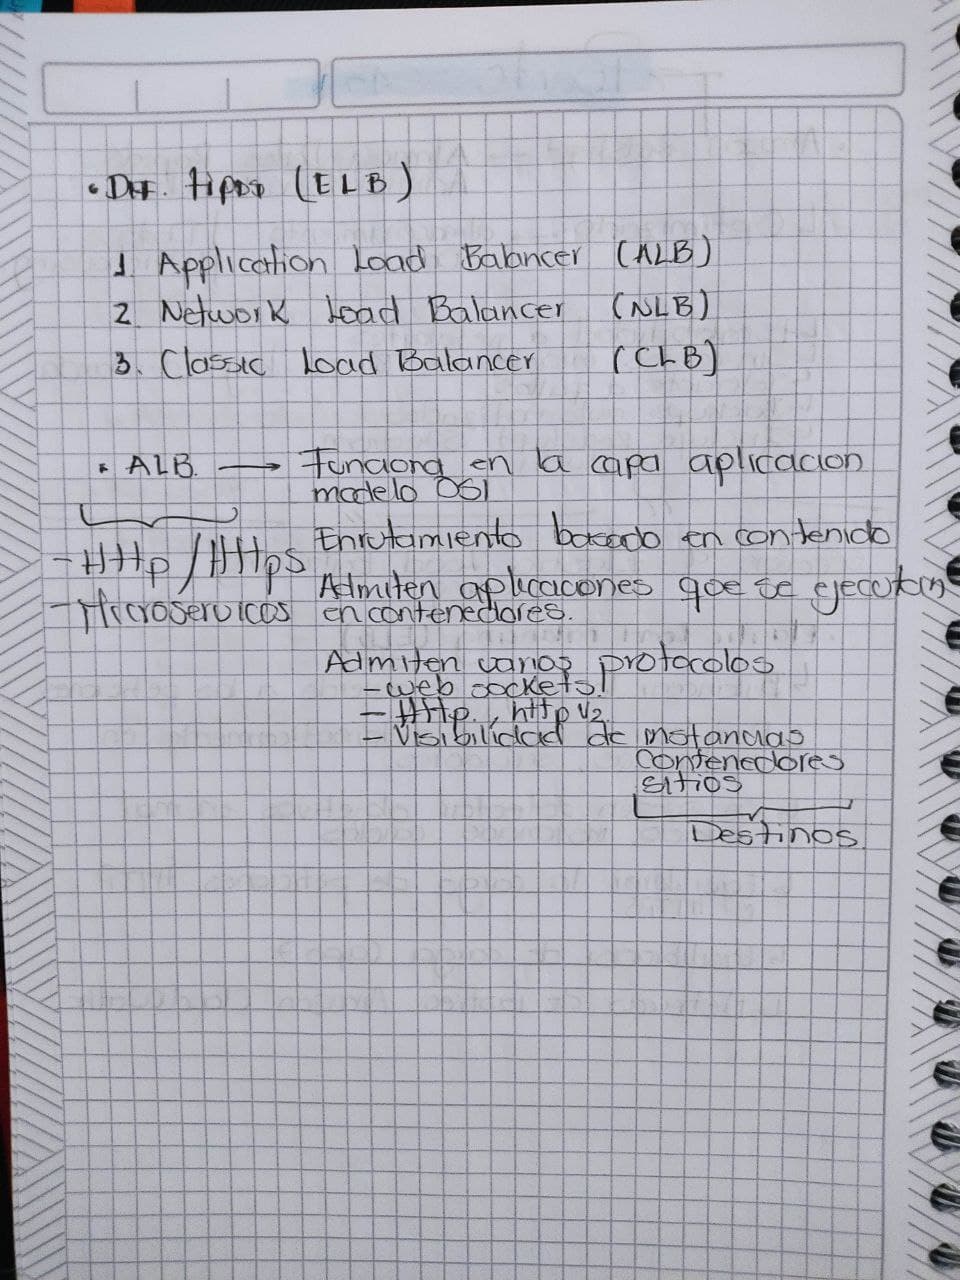 • Dif. tipos (ELB)
1 Application Load Balancer (ALB)
2. Network Load Balancer (NLB)
3. Classic Load Balancer (CLB)
• ALB. → Funciona en la capa aplicacion
modelo OSI
- HTTp / HTTps
- Microservicos
Enrutamiento basado en contenido
Admiten aplicaciones que se ejecutan
en contenedores.
Admiten varios protocolos
- web sockets
- HTTp., http v2
- Visibilidad de instancias
contenedores
sitios
Destinos